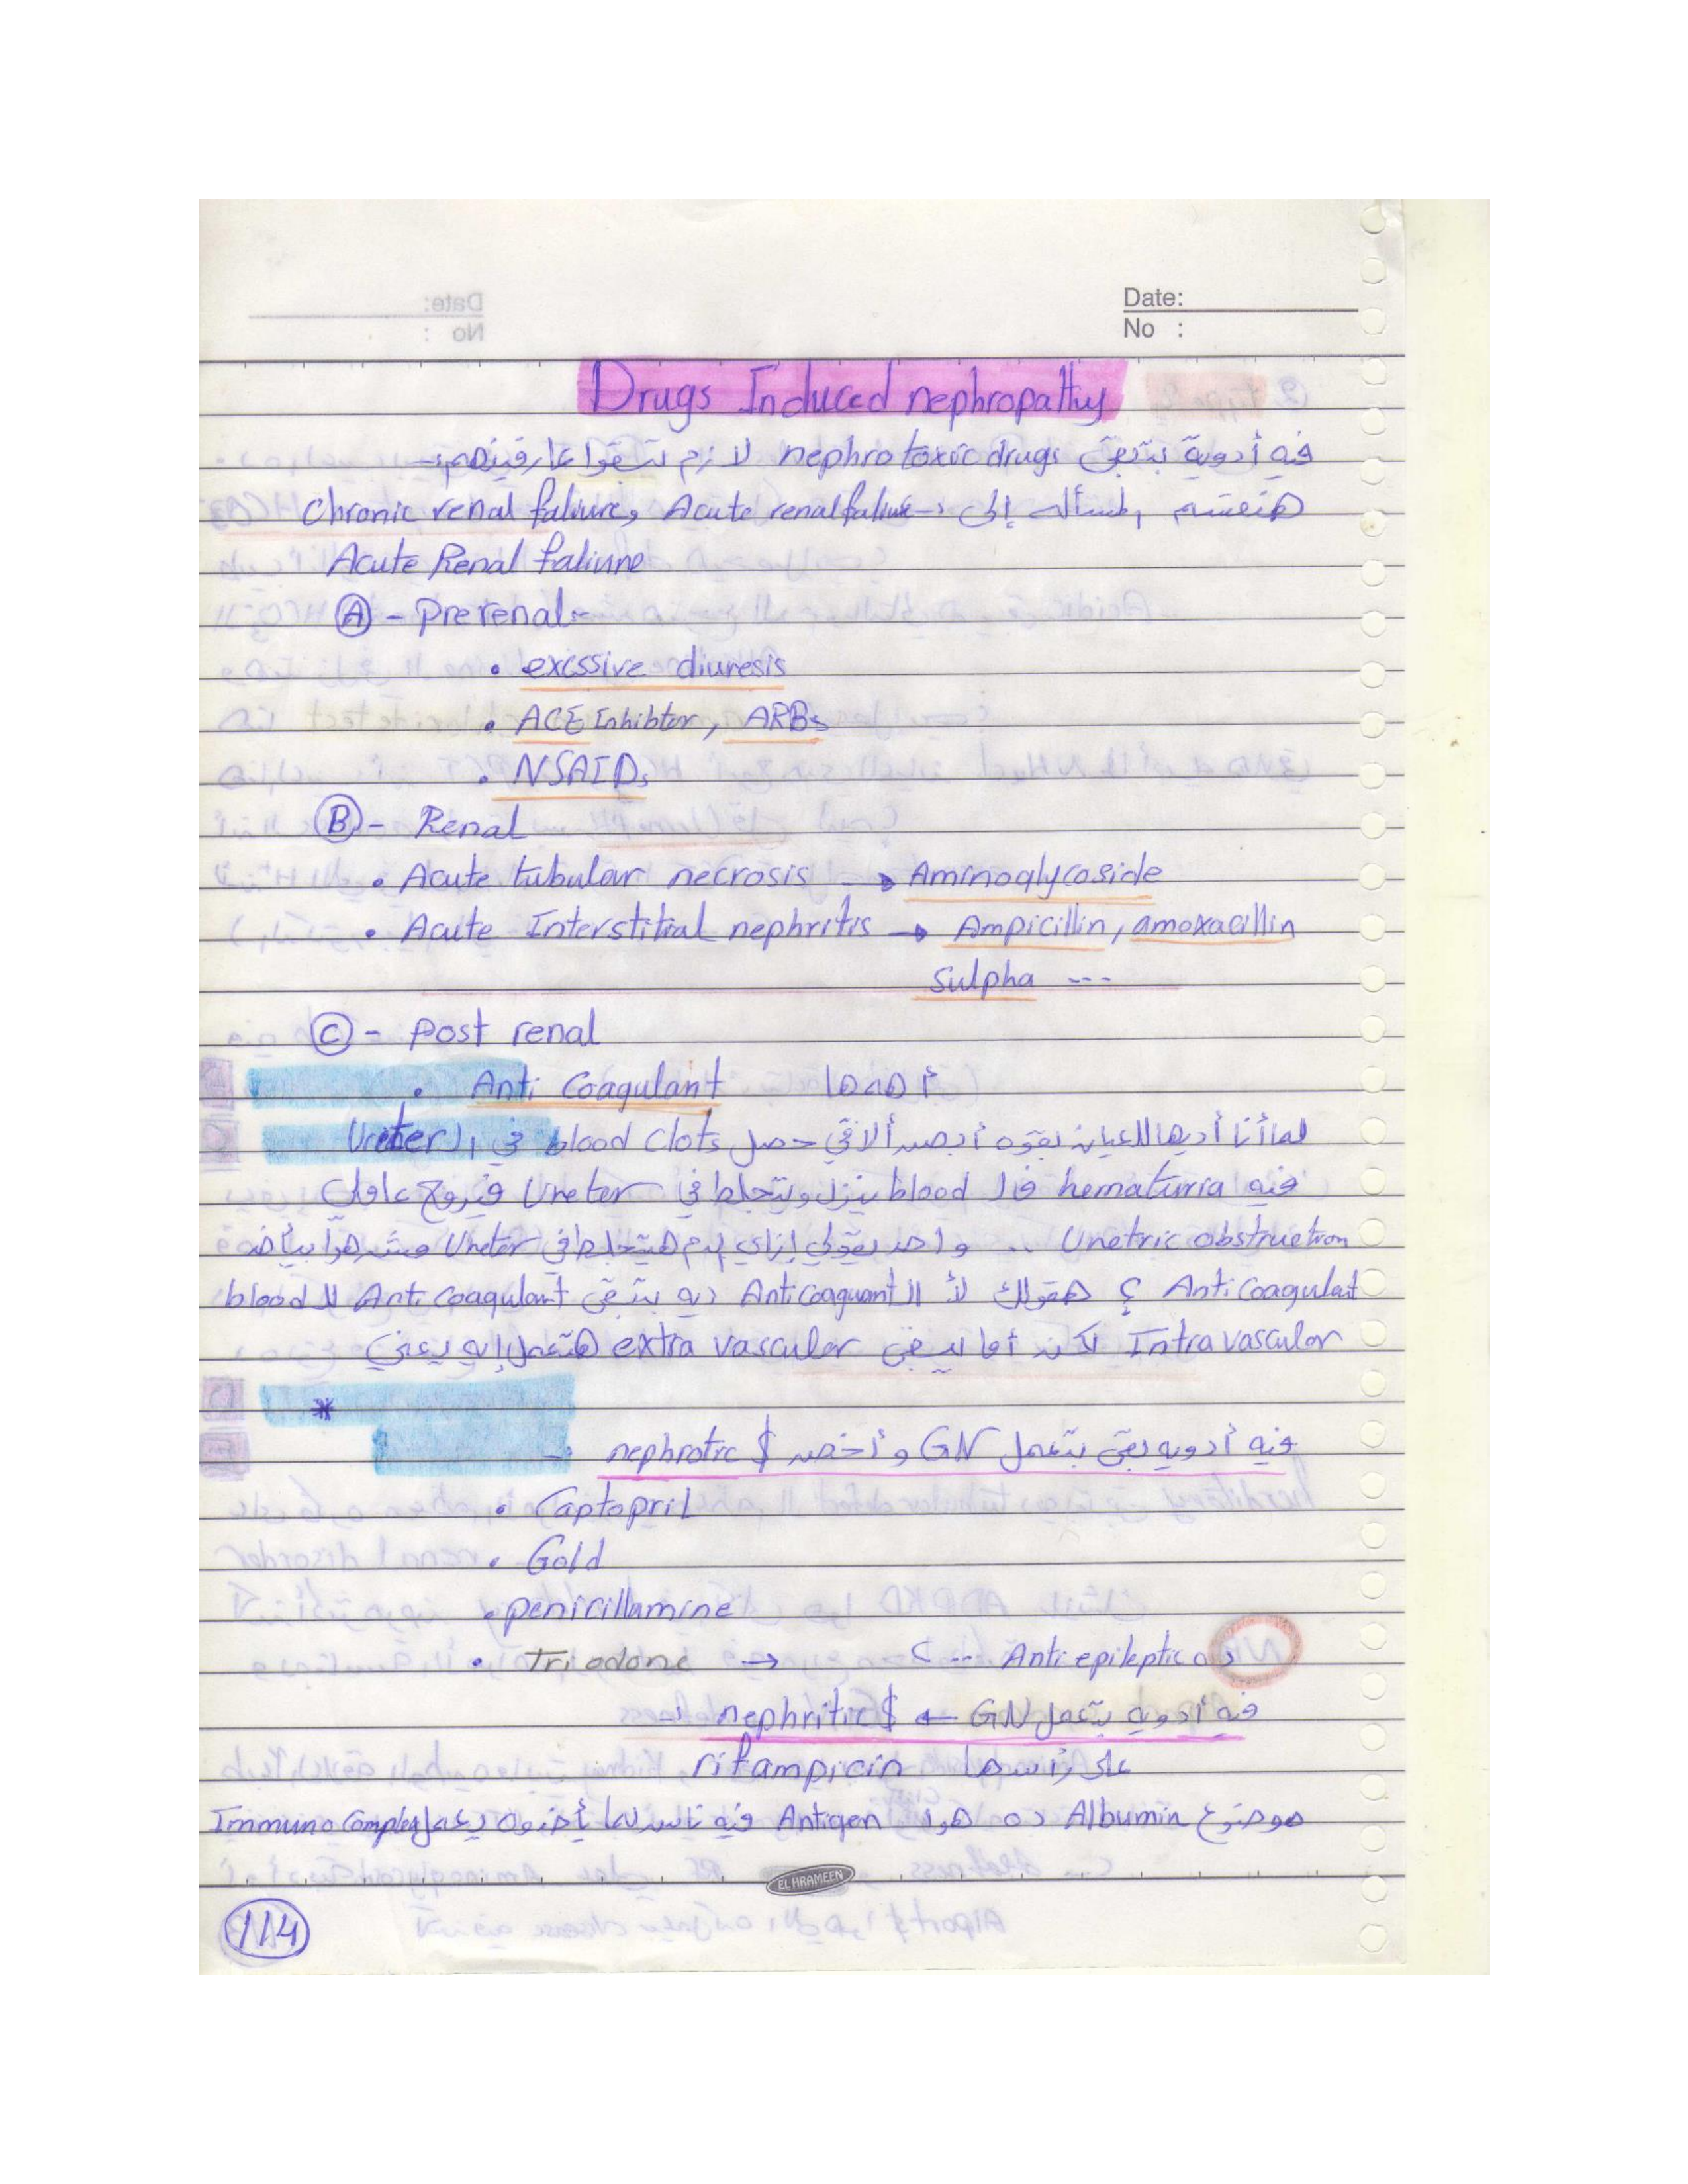 Date:
No :
Drugs Induced nephropathy
فيه أدوية بتبقى nephrotoxic drugs لازم تبقوا عارفينهم:-
هنقسم المسألة إلى :- Acute renal faliure و Chronic renal faliure
Acute Renal faliure
Ⓐ - Prerenal:-
• excssive diuresis
• ACE Inhibtor, ARBs
• NSAIDs
Ⓑ - Renal
• Acute tubular necrosis → Aminoglycoside
• Acute Interstitial nephritis → Ampicillin, amoxacillin
Sulpha ---
Ⓒ - Post renal
• Anti Coagulant أهمها
لما أنا أديها للعيان بقوه أبص ألاقي حصل blood clots في الـ Ureter
فيه hematuria فالـ blood بينزل ويتجلط في Ureter فيروح عاملي
Uretric obstruction .. واحد يقولي إزاي الدم هيتجلط في Ureter مش هوا بياخد
Anti Coagulat ؟ هقولك لأ الـ Anti Coaguant ديه بتبقى Anti Coagulant للـ blood
Intravascular لكن أما يبقى extra vascular هتعمل إيه يعني
*
فيه أدويه بقى بتعمل GN و أخص nephrotic $ :-
• Captopril
• Gold
• penicillamine
• Tri odone → ده Anti epileptic --
فيه أدويه بتعمل GN ← nephritic $ :-
على رأسها rifampicin
موضوع Albumin ده هوا Antigen فيه ناس لما ياخدوه يعمل Immuno Complex
EL HRAMEEN
114